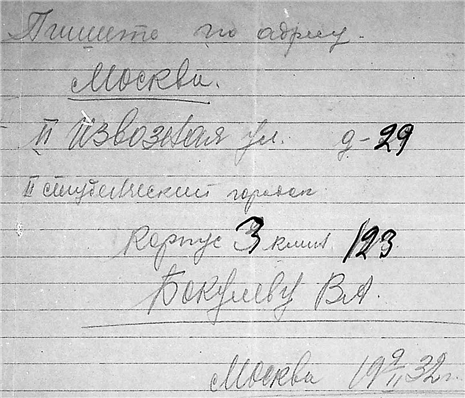 Пишите по адресу.
Москва.
II Извозная ул. д-29
II студенческий городок
корпус 3 комн 123
Бокулеву ВА.
Москва 19 9/II 32 г.